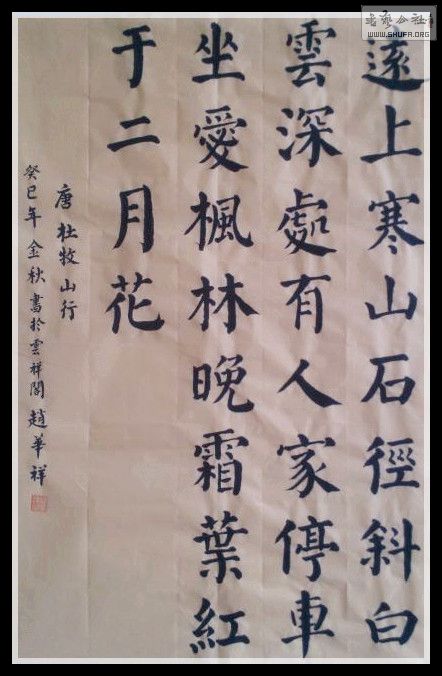 遠上寒山石徑斜白
雲深處有人家停車
坐愛楓林晚霜葉紅
于二月花
唐杜牧山行
癸巳年金秋書於雲祥閣趙華祥
WWW.SHUFA.ORG